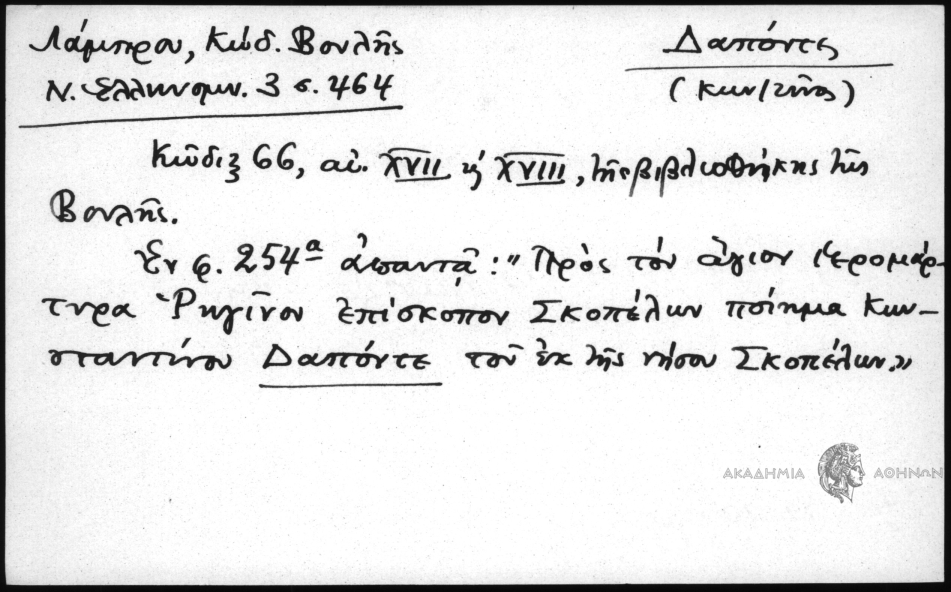 Λάμπρου, Κώδ. Βουλῆς
Ν. Ἑλληνομν. 3 σ. 464
Δαπόντες
(Κων/τῖνος)
Κῶδιξ 66, αἰ. XVII ἢ XVIII, τῆς βιβλιοθήκης τῆς
Βουλῆς.
Ἐν φ. 254α ἀπαντᾷ: "Πρὸς τὸν ἅγιον ἱερομάρ-
τυρα Ῥηγῖνον ἐπίσκοπον Σκοπέλων ποίημα Κων-
σταντίνου Δαπόντε τοῦ ἐκ τῆς νήσου Σκοπέλων."
ΑΚΑΔΗΜΙΑ ΑΘΗΝΩΝ